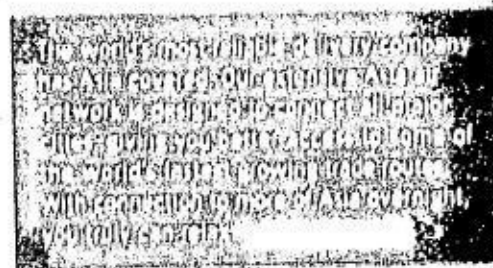 The world's most reliable delivery company
has Asia covered. Our extensive Asia air
network is designed to connect all major
cities, giving you better access to some of
the world's fastest growing trade routes.
With connection to more of Asia overnight,
you truly can relax.